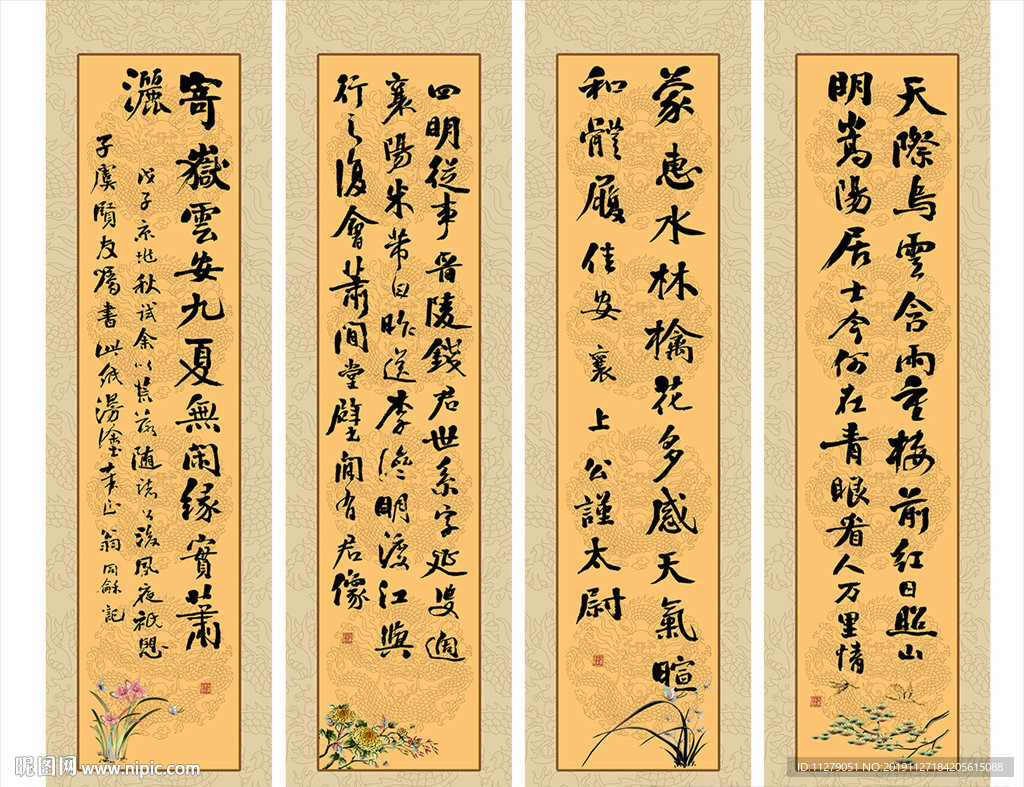 天際烏雲含雨重樓前紅日照山
明嵩陽居士今何在青眼看人万里情
蒙惠水林檎花多感天氣暄
和體履佳安 襄 上 公謹太尉
四明從事晋陵錢君世系字延叟過
襄陽米芾曰昨送李澹明渡江與
行之復會蕭閒堂壁間有君像
寄嶽雲安九夏無閑缘實蕭
灑
戊子京兆秋試余以 随諸公後風夜祗
子虞賢友屬書此紙漫塗奉正翁同龢記
昵图网 www.nipic.com
ID:11279051 NO:20191127184205615088